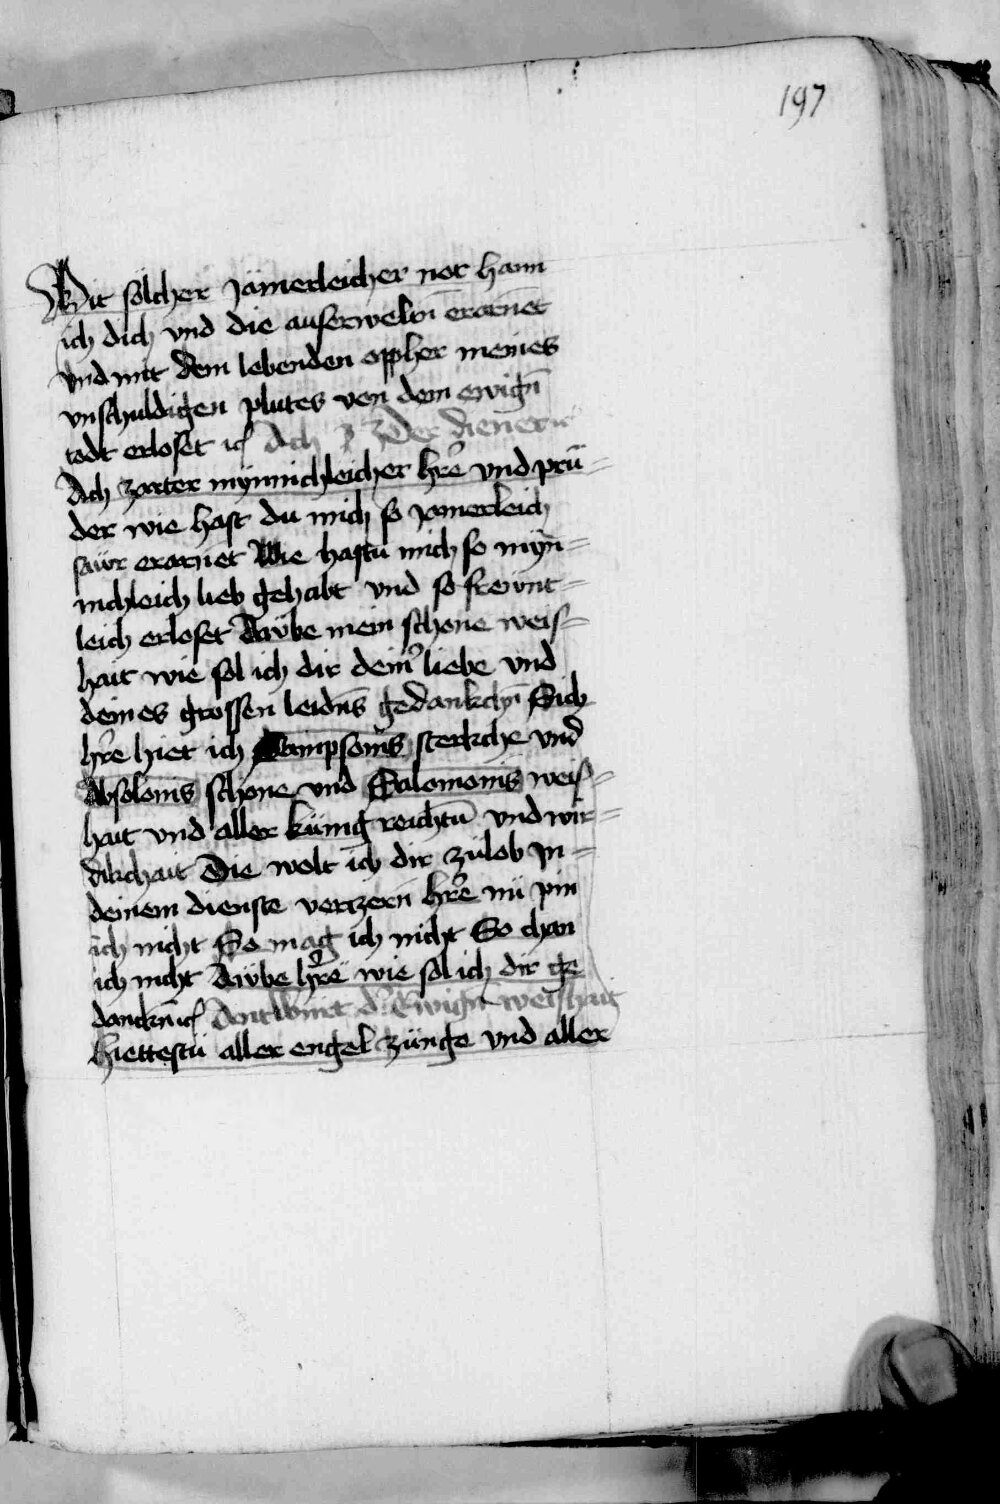 197
Mit sölcher Jämerleicher not hann
ich dich vnd die auserweltn̄ erarnet
vnd mit dem lebenden oppher meines
vnschuldigen plutes von dem ewign̄
todt erloset Der diener
Ach zarter mynnichleicher hr̄e vnd prü=
der wie hast du mich so Jamerleich
saẅr erarnet Wie hastu mich so myn̄=
nichleich lieb gehabt vnd so frewnt=
leich erloset Awbe mein schone weis=
hait wie sol ich dir dein̉ liebe vnd
deines grossen leidn̄s gedankchn̄ Sich
hr̄e hiet ich Sampsonis sterkche vnd
Absolonis schone vnd Salomonis weis=
hait vnd aller künig reichtū vnd wir=
dikchait Die wolt ich dir zülob Jn=
deinem dienste vertzern hr̄e nü pin
ich nicht So mag ich nicht So chan
ich nicht Awbe hr̄e wie sol ich dir ge
danckn̄ Antwürt d̉ Ewign̄ weishait
Hiettestü aller engel zünge vnd aller